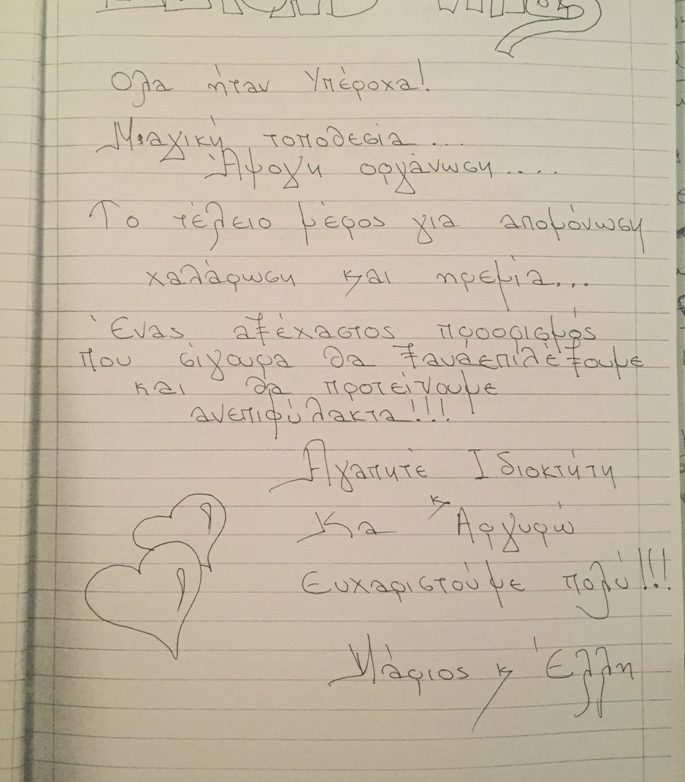 Ολα ήταν Υπέροχα!
Μαγική τοποθεσία...
Άψογη οργάνωση....
Το τέλειο μέρος για απομόνωση
χαλάρωση και ηρεμία...
Ένας αξέχαστος προορισμός
που σίγουρα θα ξαναεπιλέξουμε
και θα προτείνουμε
ανεπιφύλακτα!!!
Αγαπητέ Ιδιοκτήτη
κ
Κα Άργυρώ
Ευχαριστούμε πολύ!!!
Μάριος κ Έλλη